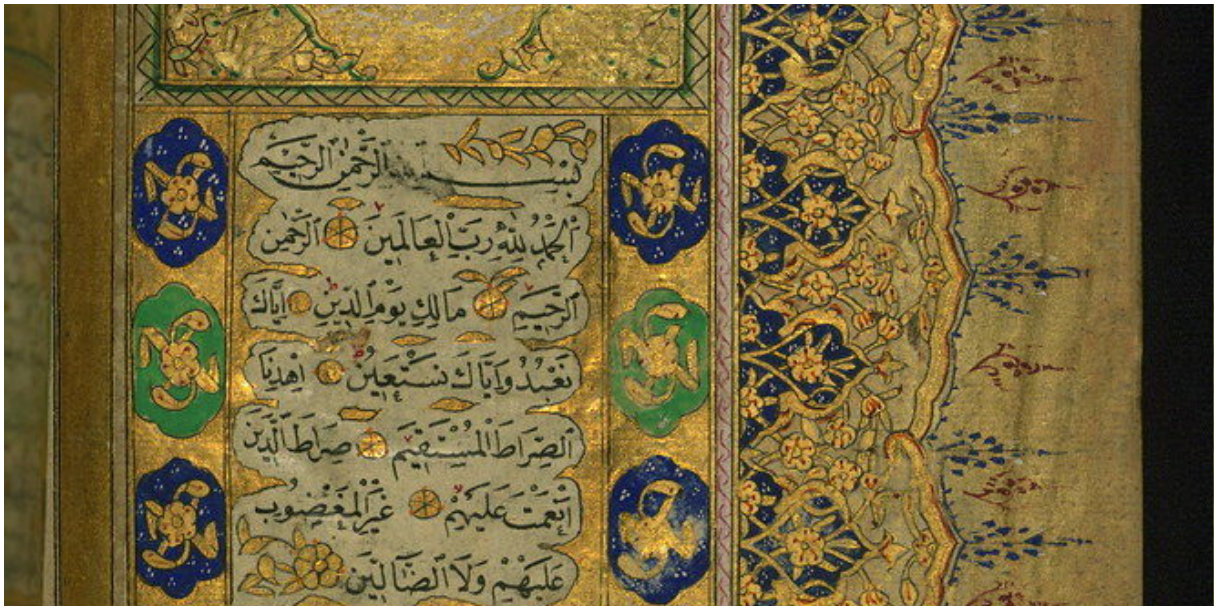 بِسْمِ الرَّحْمٰنِ الرَّحِيْمِ
اَلْحَمْدُ لِلّٰهِ رَبِّ الْعَالَمِيْنَ الرَّحْمٰنِ
الرَّحِيْمِ مَالِكِ يَوْمِ الدِّيْنِ اِيَّاكَ
نَعْبُدُ وَاِيَّاكَ نَسْتَعِيْنُ اِهْدِنَا
الصِّرَاطَ الْمُسْتَقِيْمَ صِرَاطَ الَّذِيْنَ
اَنْعَمْتَ عَلَيْهِمْ غَيْرِ الْمَغْضُوْبِ
عَلَيْهِمْ وَلَا الضَّالِّيْنَ